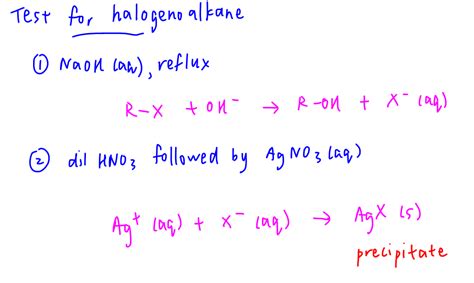 Test for halogenoalkane
① NaOH (aq), reflux
R-X + OH⁻ → R-OH + X⁻ (aq)
② dil HNO₃ followed by AgNO₃ (aq)
Ag⁺ (aq) + X⁻ (aq) → AgX (s)
precipitate